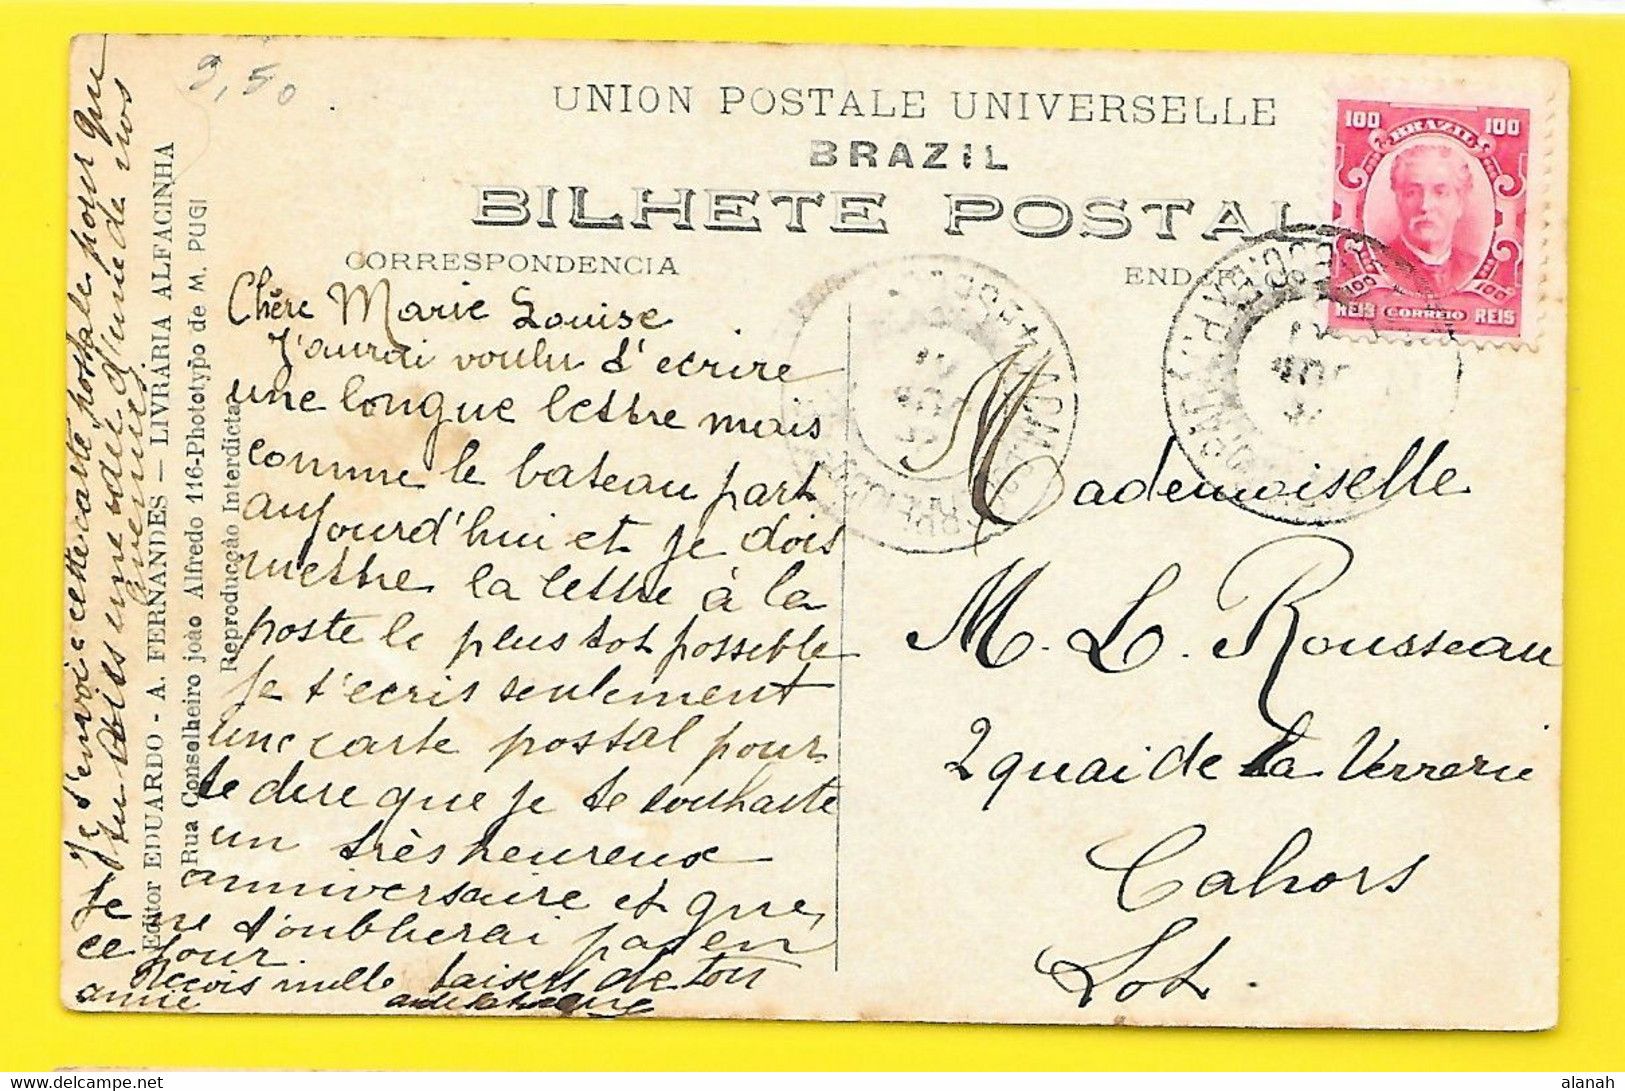 3,50
UNION POSTALE UNIVERSELLE
BRAZIL
BILHETE POSTAL
CORRESPONDENCIA
Chère Marie Louise
J'aurai voulu t'ecrire
une longue lettre mais
comme le bateau part
aujourd'hui et je dois
mettre la lettre à la
poste le plus tot possible
je t'ecris seulement
une carte postal pour
te dire que je te souhaite
un très heureux
anniversaire et que
je ne t'oublierai pas en
ce jour.
Reçois mille baisers de ton
amie
Je t'envoie cette carte postale pour que
tu aies une vue d'une de nos
avenues.
Editor EDUARDO - A. FERNANDES - LIVRARIA ALFACINHA
Rua Conselheiro joão Alfredo 116-Phototypo de M. PUGI
Reproducção Interdicta
100 BRAZIL 100
100 100
REIS CORREIO REIS
Mademoiselle
M. L. Rousseau
2 quai de la Verrerie
Cahors
Lot.
alanah